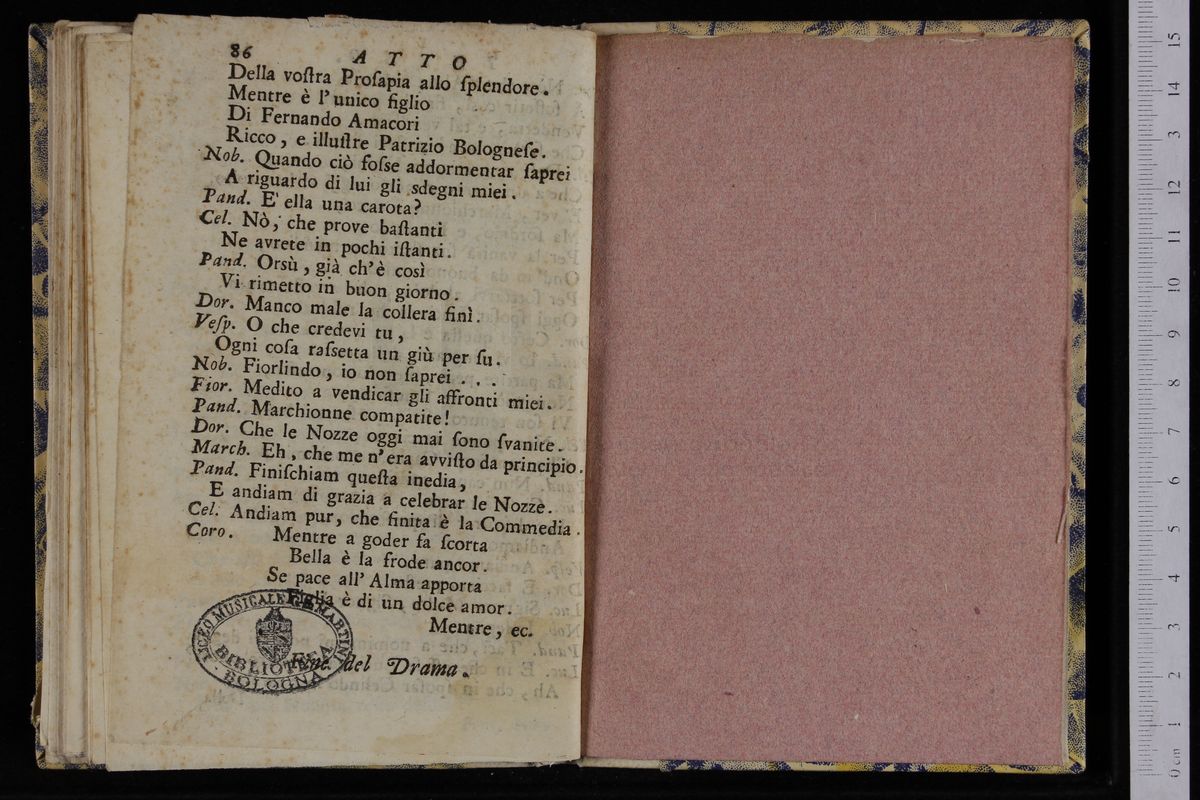 86 ATTO
Della voſtra Proſapia allo ſplendore.
Mentre è l'unico figlio
Di Fernando Amacori
Ricco, e illuſtre Patrizio Bologneſe.
Nob. Quando ciò foſse addormentar ſaprei
A riguardo di lui gli sdegni miei.
Pand. E' ella una carota?
Cel. Nò, che prove baſtanti
Ne avrete in pochi iſtanti.
Pand. Orsù, già ch'è così
Vi rimetto in buon giorno.
Dor. Manco male la collera finì.
Veſp. O che credevi tu,
Ogni coſa raſsetta un giù per ſu.
Nob. Fiorlindo, io non ſaprei . . .
Fior. Medito a vendicar gli affronti miei.
Pand. Marchionne compatite!
Dor. Che le Nozze oggi mai ſono ſvanite.
March. Eh, che me n'era avviſto da principio.
Pand. Finiſchiam queſta inedia,
E andiam di grazia a celebrar le Nozze.
Cel. Andiam pur, che finita è la Commedia.
Coro. Mentre a goder fa ſcorta
Bella è la frode ancor.
Se pace all' Alma apporta
Figlia è di un dolce amor.
Mentre, ec.
Fine del Drama.
LICEO MUSICALE G.B. MARTINI
BIBLIOTECA
BOLOGNA
0 cm 1 2 3 4 5 6 7 8 9 10 11 12 13 14 15